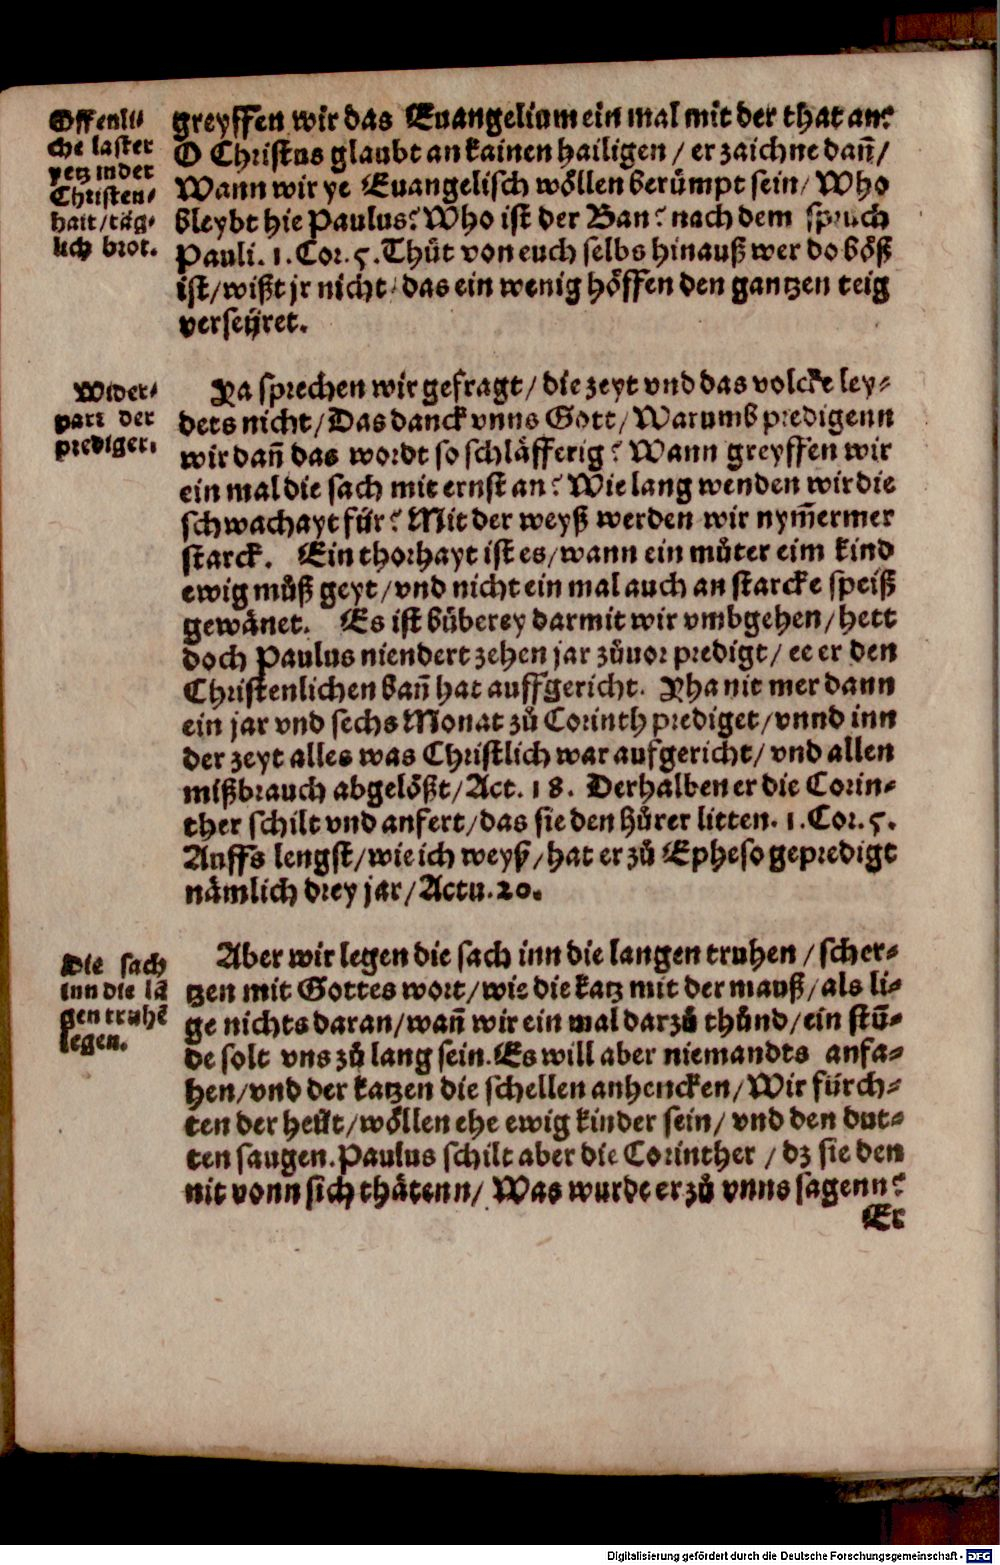 Offenli⸗
che laster
yetz in der
Christen⸗
hait/täg⸗
lich brot.
greyffen wir das Euangelium ein mal mit der that an?
O Christus glaubt an kainen hailigen/ er zaichne dañ/
Wann wir ye Euangelisch wöllen berümpt sein/ Who
bleybt hie Paulus? Who ist der Ban? nach dem spruch
Pauli. 1. Cor. 5. Thůt von euch selbs hinauß wer do böß
ist/wißt jr nicht/ das ein wenig höffen den gantzen teig
verseÿret.
Wider⸗
part der
prediger.
Ya sprechen wir gefragt/ die zeyt vnd das volck eley⸗
dets nicht/ Das danck vnns Gott/ Warumb predigenn
wir dañ das wordt so schläfferig? Wann greyffen wir
ein mal die sach mit ernst an? Wie lang wenden wir die
schwachayt für? Mit der weyß werden wir nym̃ermer
starck. Ein thorhayt ist es/ wann ein můter eim kind
ewig můß geyt/ vnd nicht ein mal auch an starcke speiß
gewänet. Es ist bůberey darmit wir vmbgehen/ hett
doch Paulus niendert zehen jar zůuor predigt/ ee er den
Christenlichen bañ hat auffgericht. Yha nit mer dann
ein jar vnd sechs Monat zů Corinth prediget/ vnnd inn
der zeyt alles was Christlich war aufgericht/ vnd allen
mißbrauch abgelößt/ Act. 18. Derhalben er die Corin⸗
ther schilt vnd anfert/ das sie den hůrer litten. 1. Cor. 5.
Auffs lengst/ wie ich weyß/ hat er zů Epheso gepredigt
nämlich drey jar/ Actu. 20.
Die sach
inn die lā
gen truhē
legen.
Aber wir legen die sach inn die langen truhen/ scher⸗
tzen mit Gottes wort/ wie die katz mit der mauß/ als li⸗
ge nichts daran/ wañ wir ein mal darzů thůnd/ ein stū⸗
de solt vns zů lang sein. Es will aber niemandts anfa⸗
hen/ vnd der katzen die schellen anhencken/ Wir fürch⸗
ten der heüt/ wöllen ehe ewig kinder sein/ vnd den dut⸗
ten saugen. Paulus schilt aber die Corinther/ dz sie den
nit vonn sich thätenn/ Was wurde er zů vnns sagenn?
Er
Digitalisierung gefördert durch die Deutsche Forschungsgemeinschaft - DFG